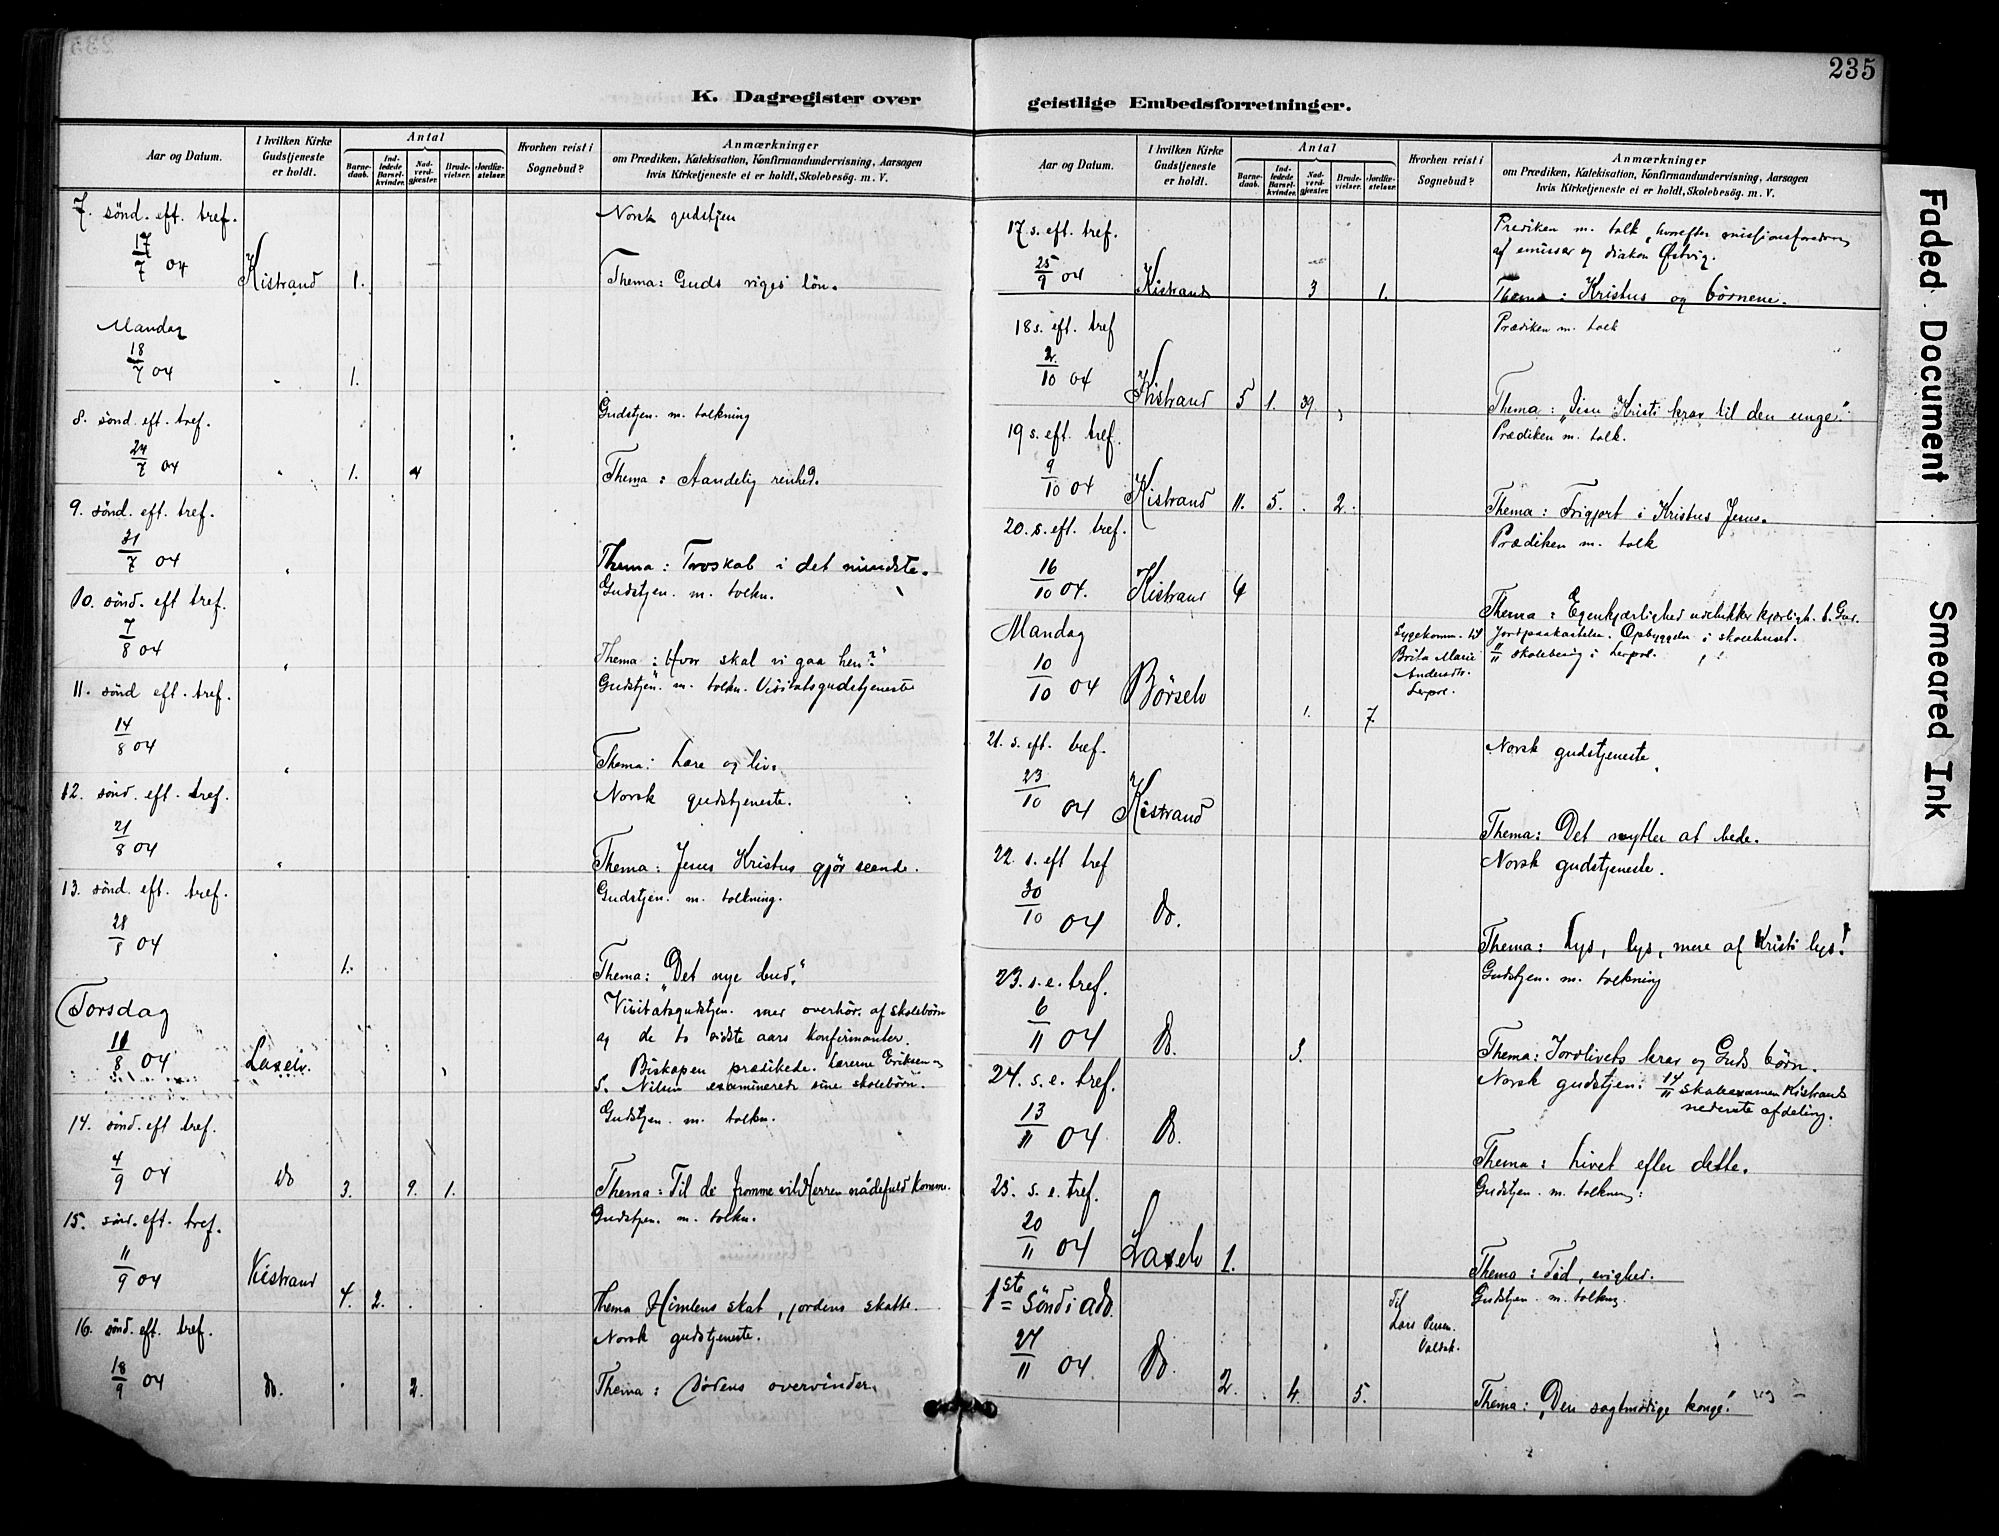 235
K. Dagregister over
geistlige Embedsforretninger.
Aar og Datum.
I hvilken Kirke Gudstjeneste er holdt.
Antal
Barnedaab.
Indledede Barselkvinder.
Nadverdgjester.
Brudevielser.
Jordfæstelser.
Hvorhen reist i Sognebud?
Anmærkninger
om Prædiken, Katekisation, Konfirmandundervisning, Aarsagen
hvis Kirketjeneste ei er holdt, Skolebesøg. m. V.
7. sönd. eft. tref.
17/7 04 Kistrand 1.
Norsk gudstjen
Thema: Guds riges lön.
Mandag
18/7 04 " 1.
8. sönd eft. tref.
24/7 04 " 1. 4
Gudstjen. m. tolkning
Thema: Aandelig renhed.
9. sönd. eft. tref.
31/7 04 "
Thema: Troskab i det mindste.
10. sönd. eft tref.
7/8 04 "
Gudstjen. m. tolkn.
Thema: "Hvor skal vi gaa hen?"
11. sönd eft. tref.
14/8 04 "
Gudstjen. m. tolkn. Visitatsgudstjeneste
Thema: Lære og liv.
12. sönd. eft. tref.
21/8 04 "
Norsk gudstjeneste.
Thema: Jesus Kristus gjör seende.
13. sönd. eft. tref.
28/8 04 " 1.
Gudstjen. m. tolkning.
Thema: "Det nye bud."
Torsdag
/8 04 Laxelv.
Visitatsgudstjen. med overhör. af skolebörn
og de to sidste aars Konfirmanter.
Biskopen prædikede. Lærerne Eriksen og
S. Nilsen examinerede sine skolebörn.
14. sönd. eft tref.
4/9 04 Do 3. 9. 1.
Gudstjen. m. tolkn.
Thema: Til de fromme vil Herren nådefuld komme.
15. sönd. eft. tref.
11/9 04 Kistrand 4. 2.
Gudstjen. m. tolkn.
Thema Himlens skat, jordens skatte.
16. sönd. eft. tref.
18/9 04 do. 2.
Norsk gudstjeneste.
Thema: Dödens overvinder.
Aar og Datum.
I hvilken Kirke Gudstjeneste er holdt.
Antal
Barnedaab.
Indledede Barselkvinder.
Nadverdgjester.
Brudevielser.
Jordfæstelser.
Hvorhen reist i Sognebud?
Anmærkninger
om Prædiken, Katekisation, Konfirmandundervisning, Aarsagen
hvis Kirketjeneste ei er holdt, Skolebesøg. m. V.
17 s. eft. tref.
25/9 04 Kistrand 3 1.
Prediken m. tolk, hvorefter missjonsforedrag
af emissær og diakon Östvig.
Thema: Kristus og börnene.
18 s. eft. tref
2/10 04 Kistrand 5 1. 39.
Prædiken m. tolk
Thema: "Jesu Kristi krav til den unge".
19 s. eft. tref.
9/10 04 Kistrand 11. 5. 2.
Prædiken m. tolk.
Thema: Frigjort i Kristus Jesus.
20. s. eft. tref.
16/10 04. Kistrand 4
Prædiken m. tolk
Thema: Egenkjærlighed udelukker kjærligh. t. Gud.
Mandag
10/10 04 Börselv 1. 7.
Sygekomm. til
Brita Marie
Andersdtr.
Lerpol.
Jordpaakastelse. Opbyggelse i skolehuset.
11/ skolebesög i Lerpol.
21. s. eft. tref.
23/10 04 Kistrand
Norsk gudstjeneste
Thema: Det nytter at bede.
22. s. eft tref
30/10 04 do.
Norsk gudstjeneste.
Thema: Lys, lys, mere af Kristi lys!
23. s. e. tref.
6/11 04 do. 3.
Gudstjen. m. tolkning
Thema: Jordlivets krav og Guds börn.
24. s. e. tref.
13/11 04 do.
Norsk gudstjen: 14/11 skoleexamen Kistrands
nederste afdeling.
Thema: Livet efter dette.
25. s. e. tref.
20/11 04 Laxelv 1.
Gudstjen. m. tolkning:
Thema: Tid, evighed.
1ste Sönd i adv.
27/11 04. do. 2. 4. 5.
Til
Lars Persen.
Gudstjen. m. tolkng.
Thema: "Den sagtmodige konge!"
Faded Document
Smeared Ink